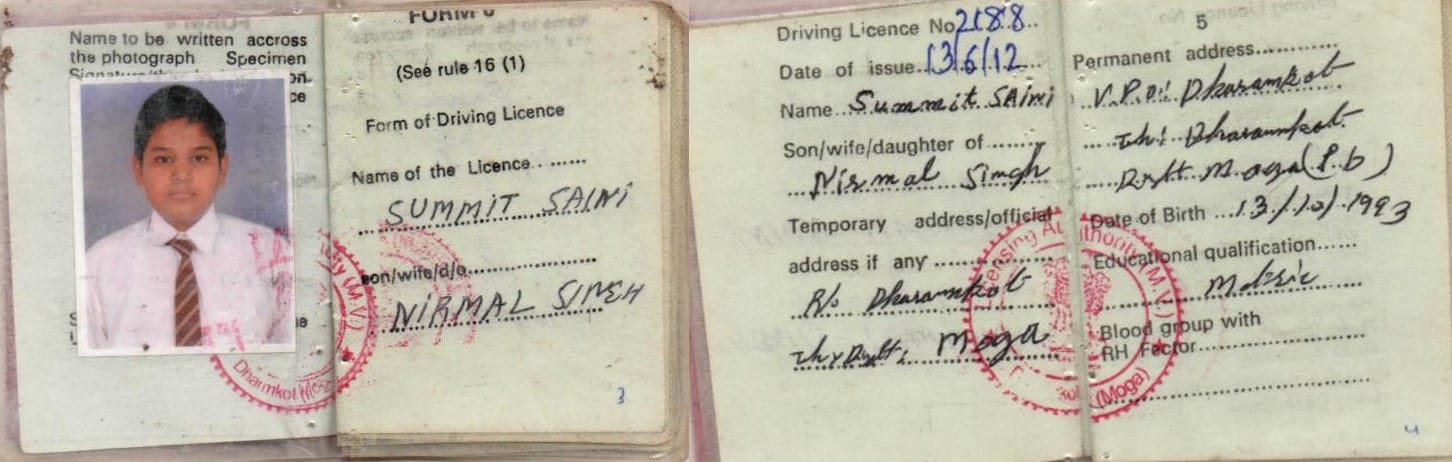 Name to be written accross
the photograph Specimen
FORM 6
(See rule 16 (1)
Form of Driving Licence
Name of the Licence.. ......
SUMMIT SAINI
son/wife/d/o..........................
NIRMAL SINGH
Dharmkot (Moga)
3
Driving Licence No 2188
Date of issue 13/6/12
Name... Summit SAINI
Son/wife/daughter of ........
Nirmal Singh
Temporary address/official
address if any ..................
R/o Dharamkot
Teh & Distt. Moga
5
Permanent address.............
V.P.O. Dharamkot
Teh: Dharamkot
Distt. Moga (P.b)
Date of Birth ...13/10/1993
Educational qualification......
Matric
Blood group with
RH Factor........................
Licensing Authority (M.V.)
(Moga)
4